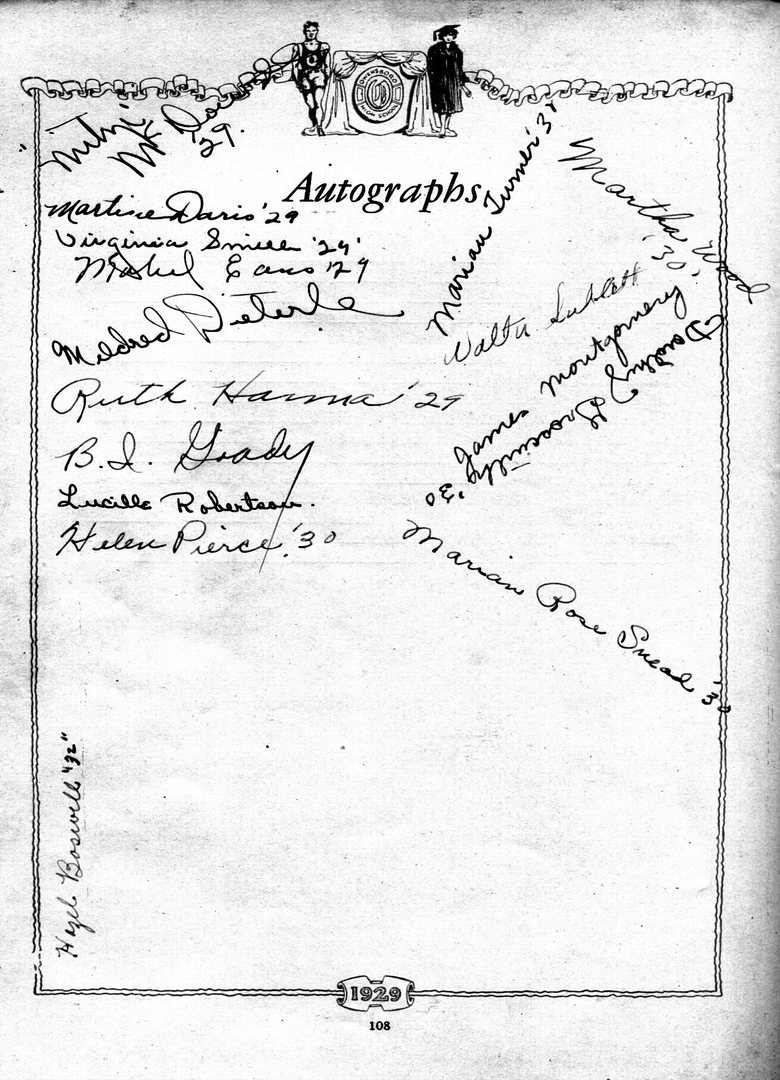 OWENSBORO
HIGH SCHOOL
Mitzi
Mc
'29.
Autographs
Martine Davis '29
Virginia '29'
Mabel Eans '29
Mildred Pieterle
Ruth Hanna '29
B. I. Grady
Lucille Robertson.
Helen Pierce '30
Marian Turner '31
Martha Wood
'30'
Walter Sublett
James Montgomery
Dorothy
'30
Marian Rose Snead '30
Hazel Boswell "32"
1929
108